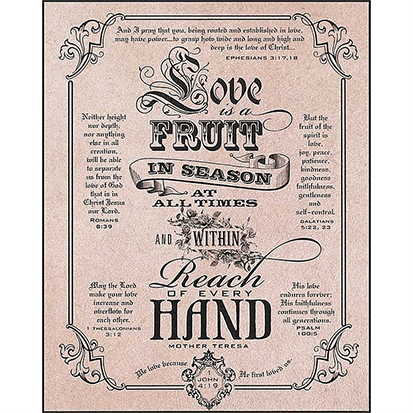 And I pray that you, being rooted and established in love,
may have power...to grasp how wide and long and high and
deep is the love of Christ...
EPHESIANS 3:17,18
Love
is a
FRUIT
IN SEASON
AT
ALL TIMES
AND WITHIN
Reach
OF EVERY
HAND
MOTHER TERESA
Neither height
nor depth,
nor anything
else in all
creation,
will be able
to separate
us from the
love of God
that is in
Christ Jesus
our Lord.
ROMANS
8:39
But the
fruit of the
spirit is
love,
joy, peace,
patience,
kindness,
goodness
faithfulness,
gentleness
and
self-control.
GALATIANS
5:22, 23
May the Lord
make your love
increase and
overflow for
each other.
1 THESSALONIANS
3:12
His love
endures forever;
His faithfulness
continues through
all generations.
PSALM
100:5
We love because He first loved us.
JOHN
4:19